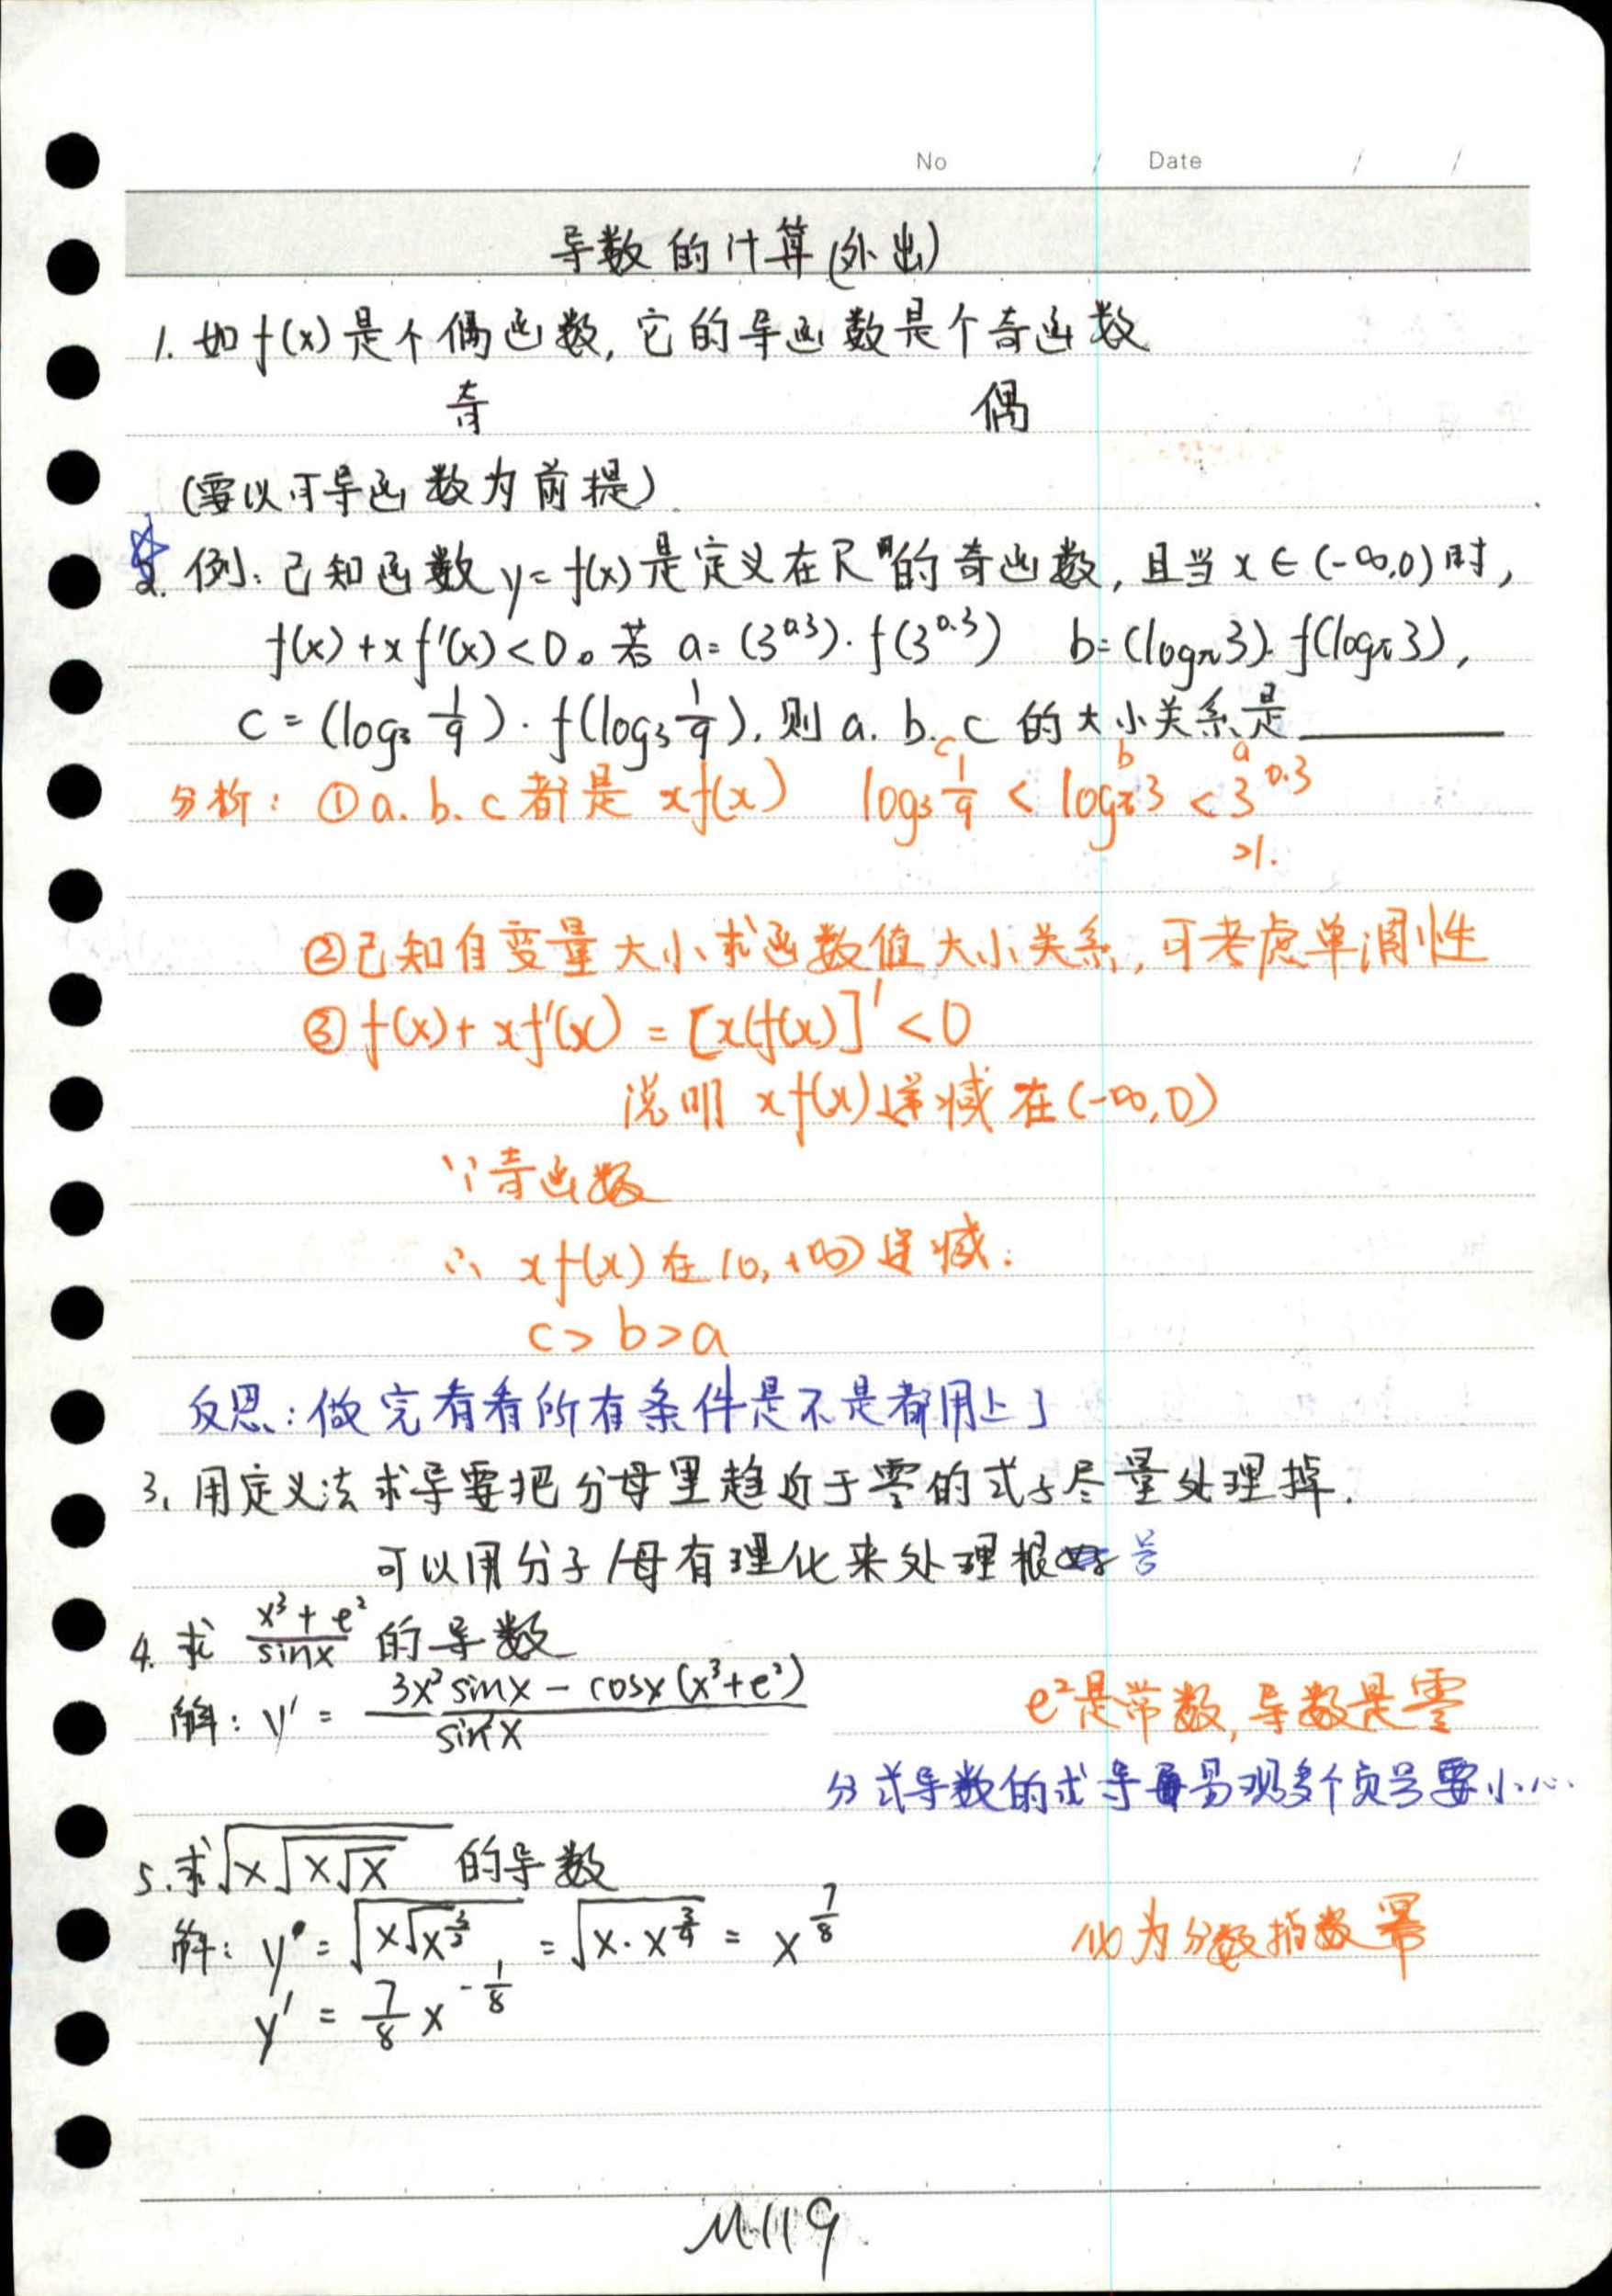 No / Date / /
导数的计算(外出)
1. 如f(x)是个偶函数, 它的导函数是个奇函数
奇 偶
(要以可导函数为前提)
☆
2. 例: 已知函数y=f(x)是定义在R的奇函数, 且当x∈(-∞,0)时,
f(x)+xf'(x)<0。若 a=(3^0.3)·f(3^0.3) b=(logπ3)·f(logπ3),
c=(log₃ 1/9)·f(log₃ 1/9), 则a. b. c 的大小关系是______
c b a
分析: ①a. b. c都是 xf(x) log₃ 1/9 < logπ3 < 3^0.3
>1.
②已知自变量大小求函数值大小关系, 可考虑单调性
③f(x)+xf'(x)=[x(f(x)]'<0
说明 xf(x)递减在(-∞,0)
∵奇函数
∴ xf(x)在(0,+∞)递减.
c>b>a
反思: 做完看看所有条件是不是都用上了
3. 用定义法求导要把分母里趋近于零的式子尽量处理掉.
可以用分子/母有理化来处理根号
4. 求 (x³+e²)/sinx 的导数
解: y' = (3x²sinx-cosx(x³+e²))/sin²x e²是常数, 导数是零
分式导数的求导易现多个负号要小心.
5. 求√(x√(x√x)) 的导数
解: y = √(x√(x^(3/2))) = √(x·x^(3/4)) = x^(7/8) 化为分数指数幂
y' = 7/8 x^(-1/8)
M119